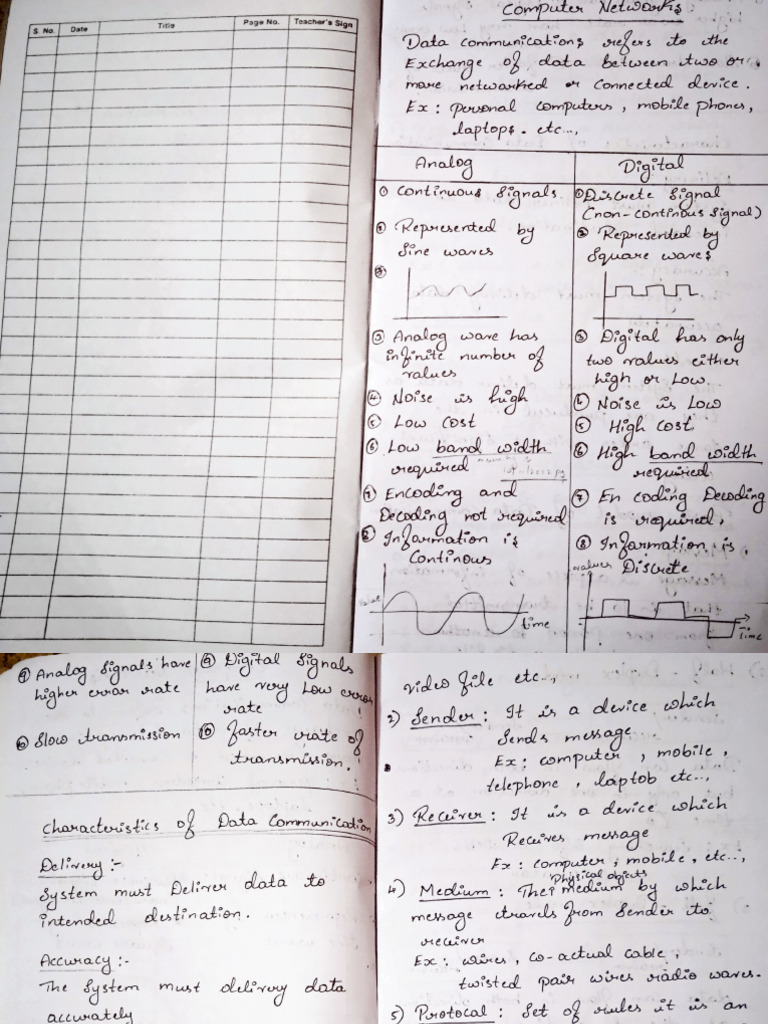 S. No. Date Title Page No. Teacher's Sign
Computer Networks:
Data communications refers to the
Exchange of data between two or
more networked or connected device.
Ex: personal computers, mobile phones,
laptops. etc...,
Analog
① Continuous Signals.
② Represented by
Sine waves
③ Analog wave has
infinite number of
values
④ Noise is high
⑤ Low cost
⑥ Low band width
required
⑦ Encoding and
Decoding not required
⑧ Information is
Continous
time
Digital
① Discrete Signal
(non-continous signal)
② Represented by
Square waves
③ Digital has only
two values either
high or Low.
④ Noise is Low
⑤ High cost
⑥ High band width
required
⑦ En coding Decoding
is required,
⑧ Information is
values Discrete
Time
⑨ Analog Signals have
higher error rate
⑩ Slow transmission
⑨ Digital Signals
have very Low error
rate
⑩ faster rate of
transmission.
Characteristics of Data Communication
Delivery:-
System must Deliver data to
intended destination.
Accuracy:-
The System must delivery data
accurately
video file etc..,
2) Sender: It is a device which
Sends message
Ex: computer, mobile,
telephone, laptob etc..,
3) Receiver: It is a device which
Receives message
Ex: computer, mobile, etc..,
Physical objects
4) Medium: The medium by which
message travels from Sender to
receiver
Ex: wires, co-actual cable,
twisted pair wires radio waves.
5) Protocal: Set of rules it is an